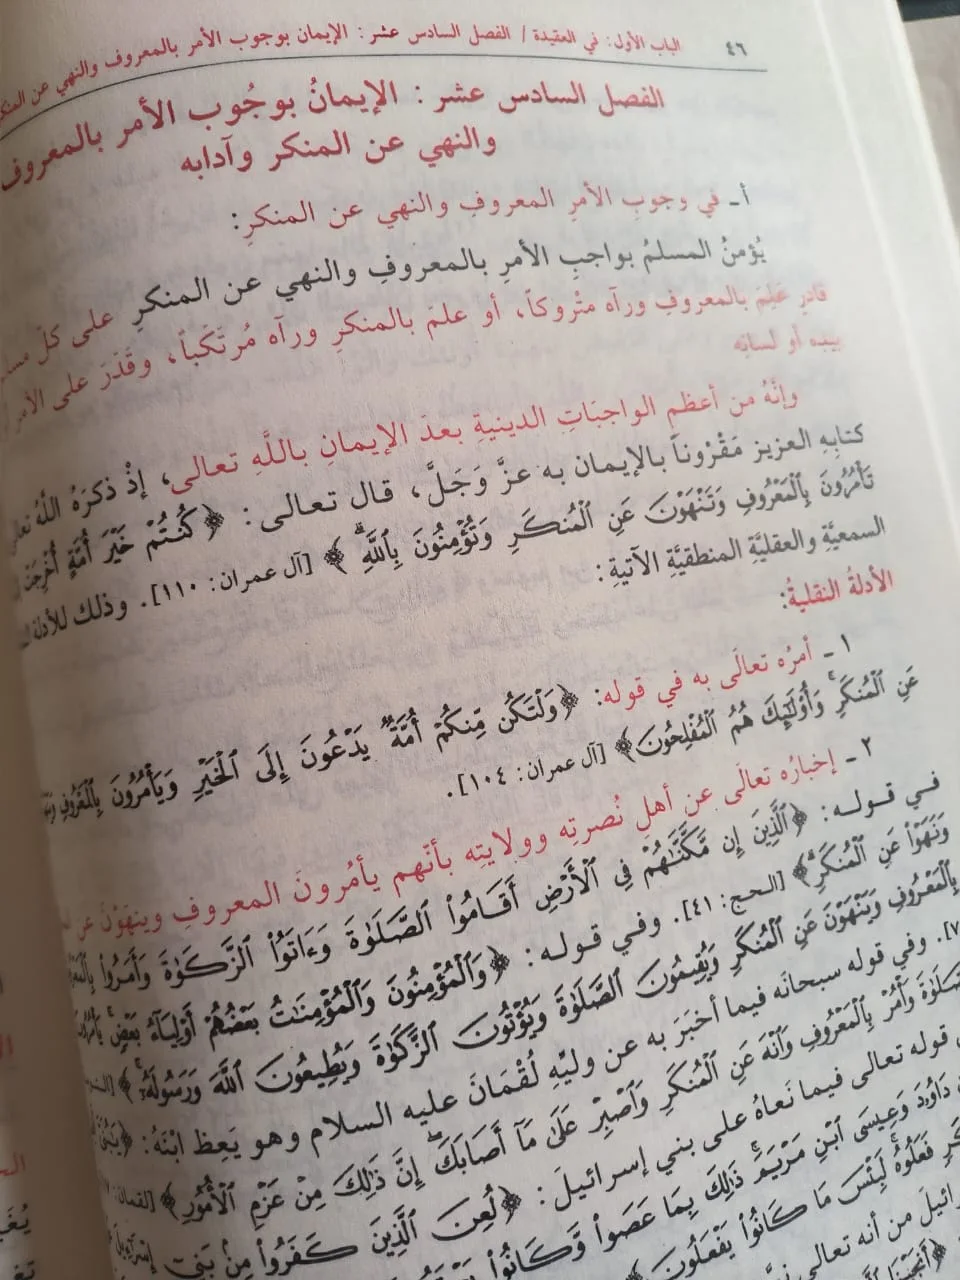 ٤٦
الباب الأول: في العقيدة / الفصل السادس عشر : الإيمان بوجوب الأمر بالمعروف والنهي عن المنكر
الفصل السادس عشر : الإيمانُ بوجُوب الأمر بالمعروف
والنهي عن المنكر وآدابه
أ ـ في وجوبِ الأمرِ المعروفِ والنهي عن المنكرِ:
يُؤمنُ المسلمُ بواجبِ الأمرِ بالمعروفِ والنهي عن المنكرِ على كلّ
قادرٍ عَلِمَ بالمعروفِ ورآه متْروكاً، أو علمَ بالمنكرِ ورآه مُرتَكَباً، وقَدَرَ على الأمر
بيده أو لسانِه
وإنَّهُ من أعظمِ الواجبَاتِ الدينيةِ بعدَ الإيمانِ باللَّهِ تعالى، إذْ ذكرَهُ اللَّهُ
كتابِهِ العزيز مَقْرُوناً بالإيمان به عزَّ وَجَلَّ، قال تعالى: ﴿كُنتُمْ خَيْرَ أُمَّةٍ أُخْرِجَتْ
تَأْمُرُونَ بِالْمَعْرُوفِ وَتَنْهَوْنَ عَنِ الْمُنكَرِ وَتُؤْمِنُونَ بِاللَّهِ﴾ [آل عمران: ١١٠]. وذلك للأدلة
السمعيَّةِ والعقليَّةِ المنطقيَّةِ الآتيةِ:
الأدلةُ النقليةُ:
١ ـ أمرُه تعالَى به في قوله: ﴿وَلْتَكُن مِّنكُمْ أُمَّةٌ يَدْعُونَ إِلَى الْخَيْرِ وَيَأْمُرُونَ بِالْمَعْرُوفِ
عَنِ الْمُنكَرِ وَأُوْلَٰئِكَ هُمُ الْمُفْلِحُونَ﴾ [آل عمران: ١٠٤].
٢ ـ إخبارُه تعالَى عن أهلِ نُصرتِه وولايتِه بأنّهم يأمُرونَ المعروفِ وينهَوْنَ عن
في قوله: ﴿الَّذِينَ إِن مَّكَّنَّاهُمْ فِي الْأَرْضِ أَقَامُوا الصَّلَوٰةَ وَءَاتَوُا الزَّكَوٰةَ وَأَمَرُوا
وَنَهَوْا عَنِ الْمُنكَرِ﴾ [الحج: ٤١]. وفي قوله: ﴿وَالْمُؤْمِنُونَ وَالْمُؤْمِنَٰتُ بَعْضُهُمْ أَوْلِيَاءُ بَعْضٍ
بِالْمَعْرُوفِ وَيَنْهَوْنَ عَنِ الْمُنكَرِ وَيُقِيمُونَ الصَّلَوٰةَ وَيُؤْتُونَ الزَّكَوٰةَ وَيُطِيعُونَ اللَّهَ وَرَسُولَهُ﴾
وفي قوله سبحانَه فيما أخبَرَ به عن وليِّهِ لُقْمَانَ عليه السلام وهو يَعِظ ابْنَهُ:
الصَّلَوٰةَ وَأْمُرْ بِالْمَعْرُوفِ وَانْهَ عَنِ الْمُنكَرِ وَاصْبِرْ عَلَىٰ مَا أَصَابَكَ إِنَّ ذَٰلِكَ مِنْ عَزْمِ الْأُمُورِ﴾ [لقمان:
قوله تعالى فيما نَعاهُ على بني إسرائيلَ: ﴿لُعِنَ الَّذِينَ كَفَرُوا مِنْ بَنِي
دَاوُدَ وَعِيسَى ابْنِ مَرْيَمَ ذَٰلِكَ بِمَا عَصَوا وَّكَانُوا
فَعَلُوهُ لَبِئْسَ مَا كَانُوا يَفْعَلُونَ
من أنه تعالى